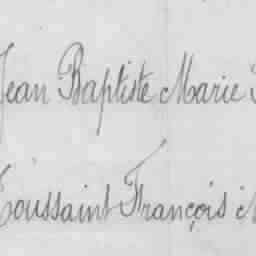 Jean Baptiste Marie
Toussaint François